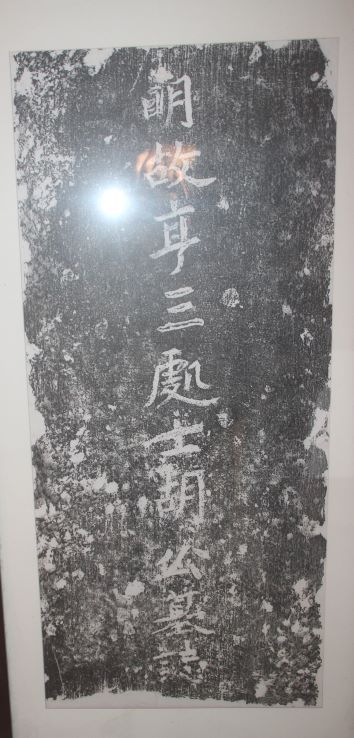 明故享三處士胡公墓誌